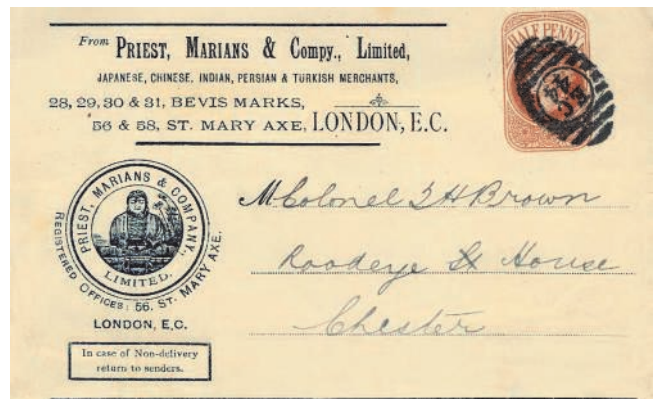 From PRIEST, MARIANS & Compy., Limited,
JAPANESE, CHINESE, INDIAN, PERSIAN & TURKISH MERCHANTS,
28, 29, 30 & 31, BEVIS MARKS,
56 & 58, ST. MARY AXE, LONDON, E.C.
HALF PENNY
EC
44
PRIEST, MARIANS & COMPANY,
LIMITED.
REGISTERED OFFICES; 56. ST. MARY AXE.
LONDON, E.C.
In case of Non-delivery
return to senders.
M Colonel H Brown
Roodeye St House
Chester